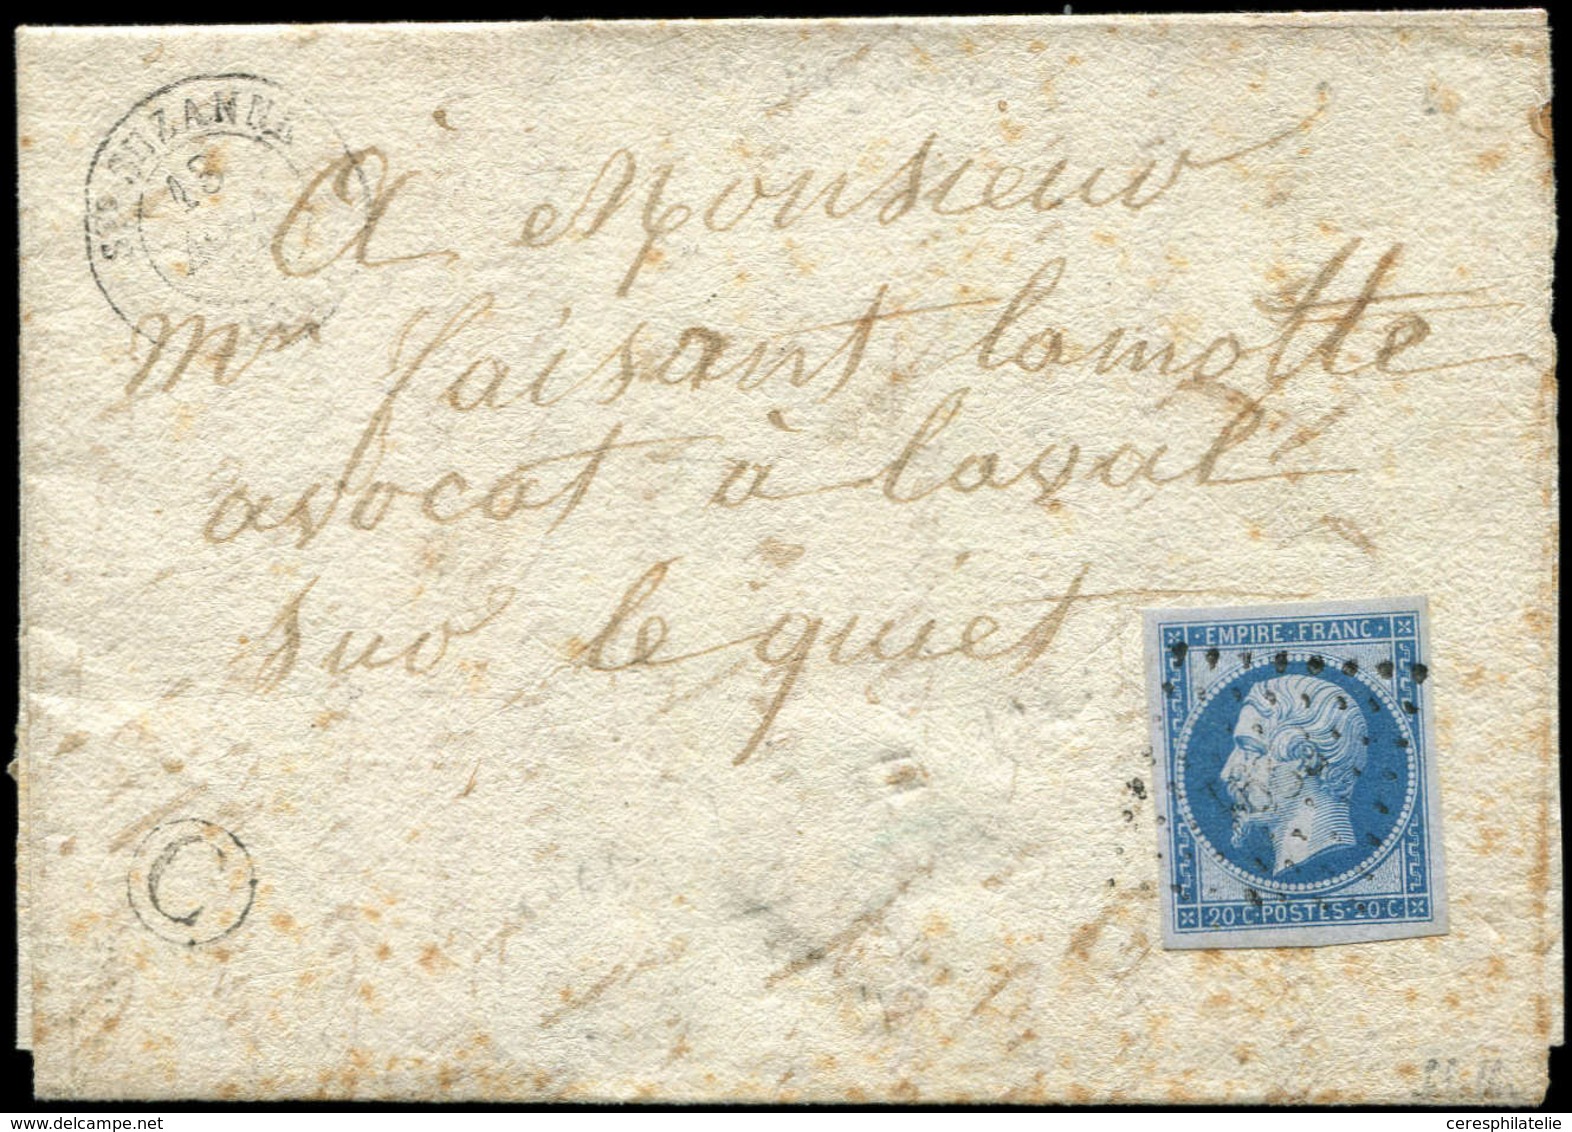 STE SUZANNE
18
À Monsieur
Mr Faisant lamotte
avocat à laval
sur le quiet
EMPIRE · FRANC ·
20 · C · POSTES · 20 · C
C
ceresphilatelie